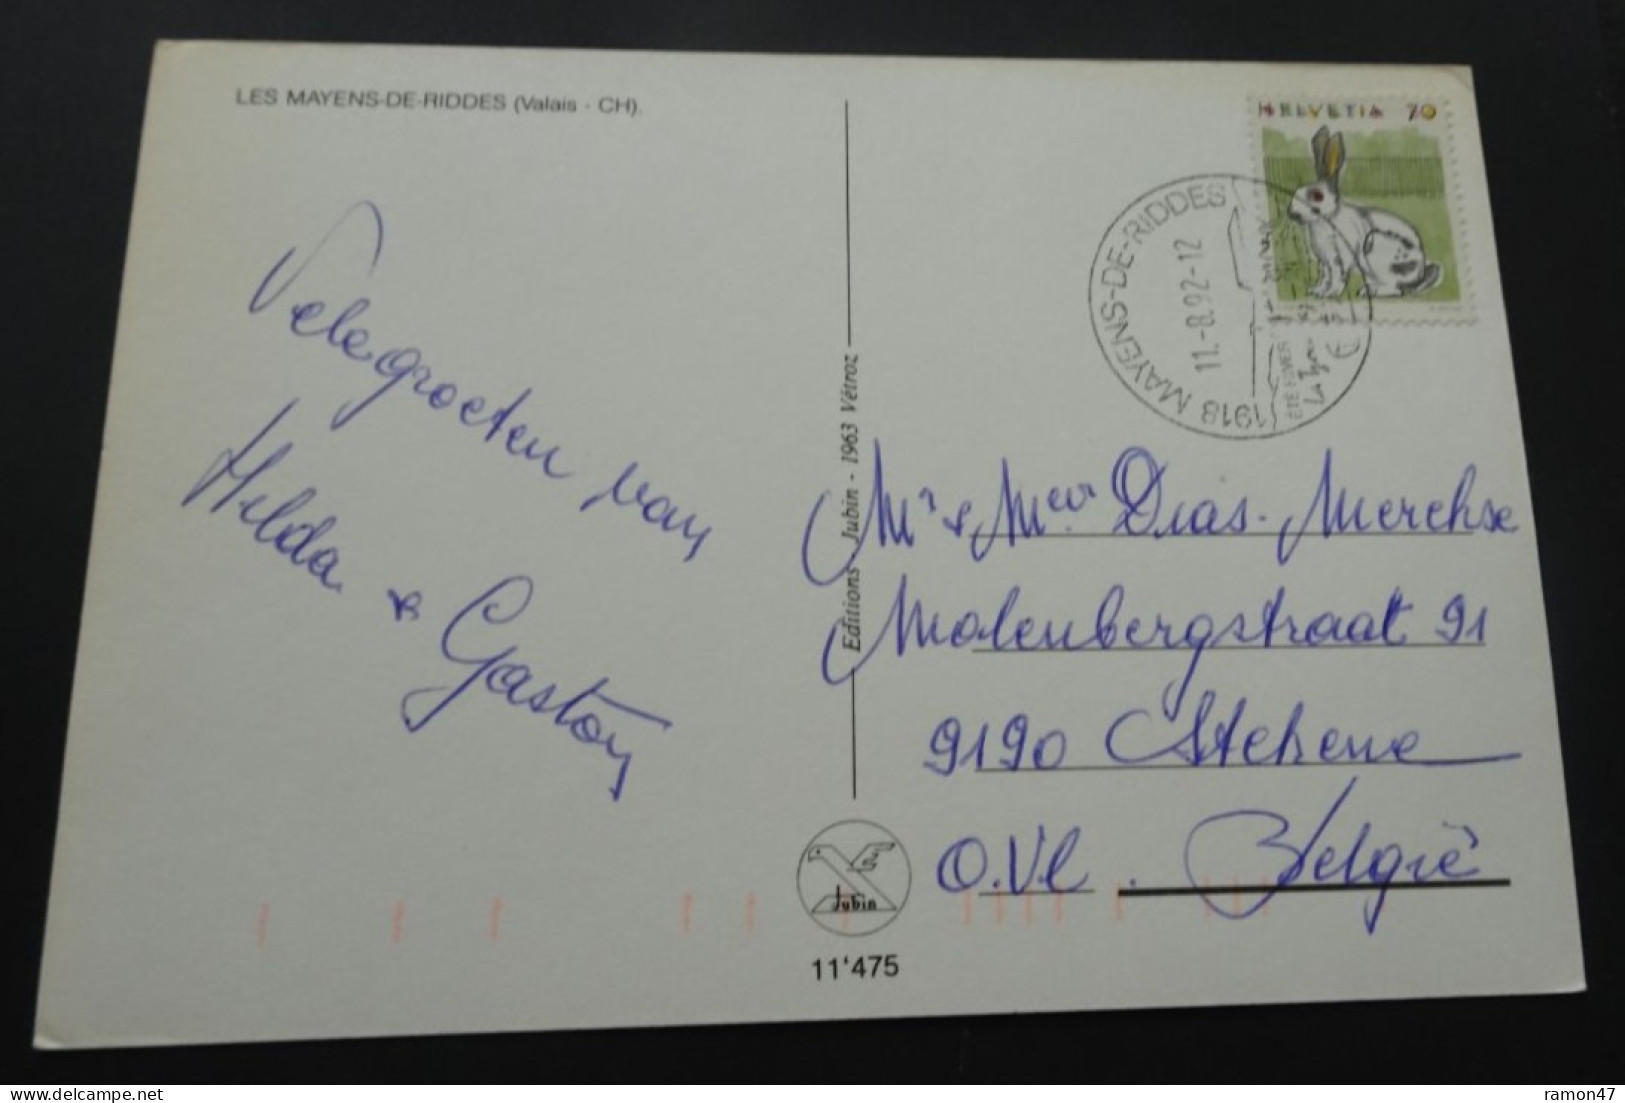 LES MAYENS-DE-RIDDES (Valais - CH).
Vele groeten van
Hilda & Gaston
Editions Jubin - 1963 Vétroz
Jubin
11'475
HELVETIA 70
1918 MAYENS-DE-RIDDES
11.-8.92-12
Mr & Mevr Dias-Merckse
Molenbergstraat 91
9190 Stekene
O.Vl. België
ramon47